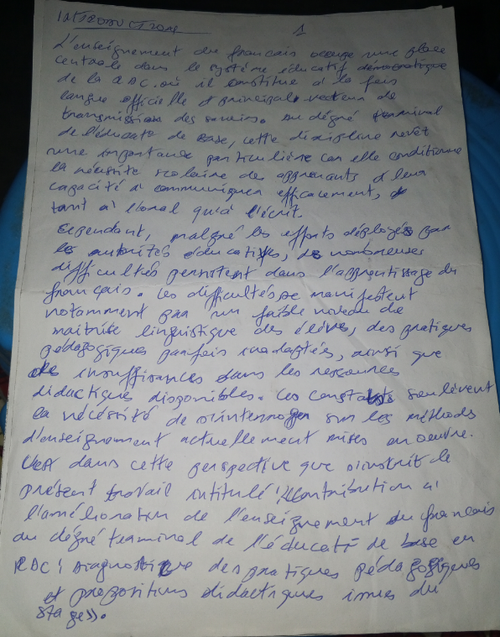 INTRODUCTION
1
L'enseignement du français occupe une place
centrale dans le système éducatif démocratique
de la RDC. où il constitue à la fois
langue officielle et principale vecteur de
transmission des savoirs. au dégré terminal
de l'éducat° de base, cette discipline revêt
une importance particulière car elle conditionne
la réussite scolaire des apprenants et leur
capacité à communiquer efficacement,
tant à l'oral qu'à l'écrit.
cependant, malgré les efforts déployés par
les autorités éducatives, de nombreuses
difficultés persistent dans l'apprentissage du
français. les difficultés se manifestent
notamment par un faible niveau de
maîtrise linguistique des élèves, des pratiques
pédagogiques parfois inadaptés, ainsi que
des insuffisances dans les ressources
didactiques disponibles. ces constats soulèvent
la nécessité de s'interroger sur les méthodes
d'enseignement actuellement mises en oeuvre.
C'est dans cette perspective que s'inscrit le
présent travail intitulé: "Contribution à
l'amélioration de l'enseignement du français
au dégré terminal de l'éducat° de base en
RDC: Diagnostique des pratiques pédagogiques
et propositions didactiques issues du
stages».